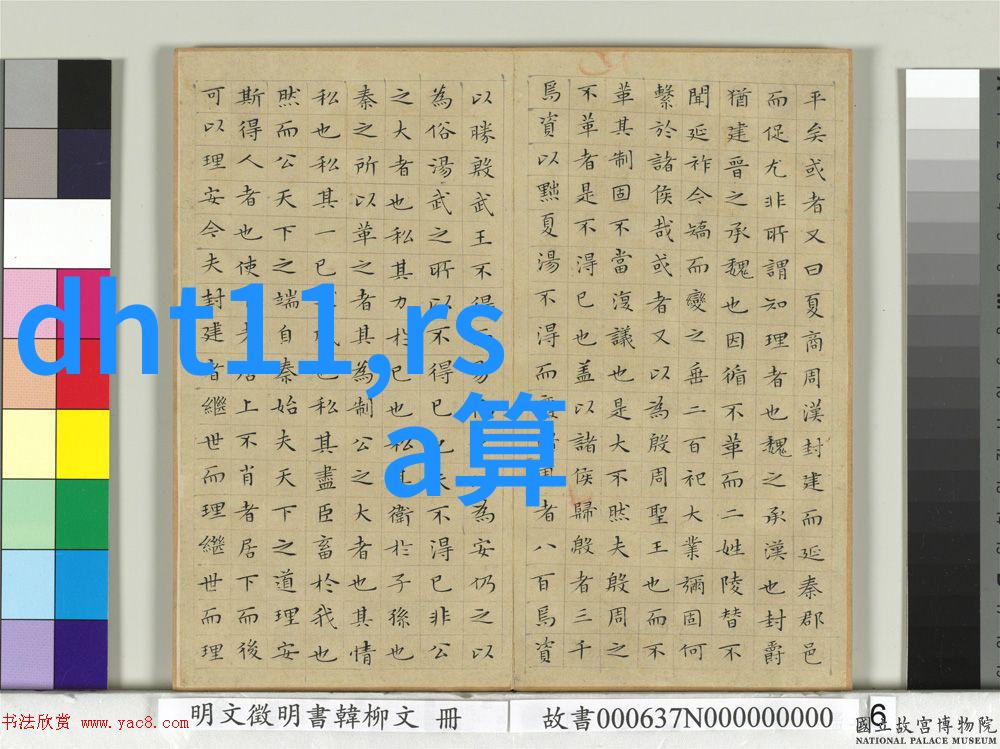 平矣或者又曰夏商周漢封建而延秦郡邑
而促尤非所謂知理者也魏之承漢也封爵
猶建晉之承魏也因循不革而二姓陵替不
聞延祚今矯而變之垂二百祀大業彌固何
繫於諸侯哉或者又以為殷周聖王也而不
革其制固不當復議也是大不然夫殷周之
不革者是不得已也蓋以諸侯歸殷者三千
焉資以黜夏湯不得而者八百焉資
以勝殷武王不得為安仍之以
為俗湯武之所以不得已夫不得已非公
之大者也私其力於己也私其衛於子孫也
秦之所以革之者其為制公之大者也其情
私也私其一己也私其盡臣畜於我也
然而公天下之端自秦始夫天下之道理安
斯得人者也使居上不肖者居下而後
可以理安今夫封建者繼世而理繼世而理
dht11,rs
a算
书法欣赏 www.yac8.com
明文徵明書韓柳文 冊
故書000637N000000000
6
國立故宮博物院
NATIONAL PALACE MUSEUM